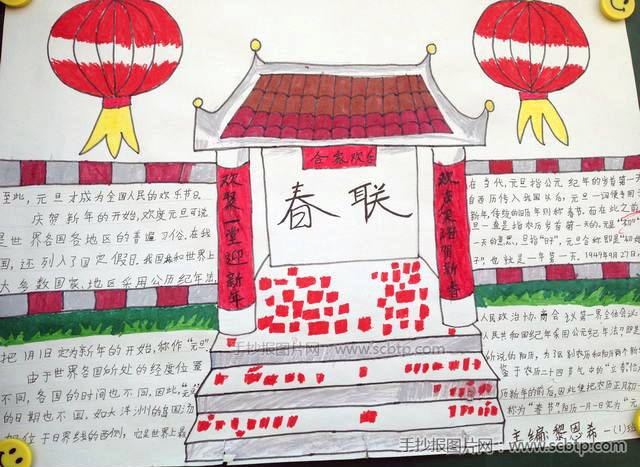 合家欢乐
春联
欢聚一堂迎新年
贺新春
至此,元旦才成为全国人民的欢乐节日。
庆贺新年的开始,欢度元旦可说
是世界各国各地区的普遍习俗。在我
国,还列入了固定假日。我国和世界上
大多数国家、地区采用公历纪年法,
把1月1日定为新年的开始,称作“元旦”。
由于世界各国所处的经度位置
不同,各国的时间也不同,因此,“元旦”
的日期也不同,如大洋洲的岛国汤
加位于日界线的西侧,也是世界上最
在当代,元旦指公元纪年的岁首第一天
自西历传入我国以后,元旦一词便专用
新年,传统的旧历年则称春节。而在此之前,
旦一直是指农历岁首第一天的。元是“初”
一天的意思。旦指“日”,元旦合称即是“初
子”,也就是一年第一天。1949年9月27日,
人民政治协商会议第一届全体会议
人民共和国纪年采用公元纪年法?即是
所说的阳历,为了区别农历和阳历两个新
鉴于农历二十四节气中的“立春”恰
历新年的前后,因此便把农历正月初
称为“春节”阳历一月一日定为“元
主编:黎恩希一(1)班
手抄报图片网:www.scbtp.com
手抄报图片网:www.scbtp.com